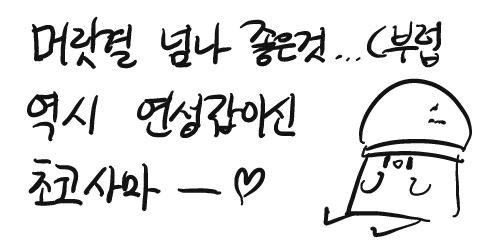 머랏결 넘나 좋은것...(부럽
역시 연성갑이신
초코사마 ― ♡